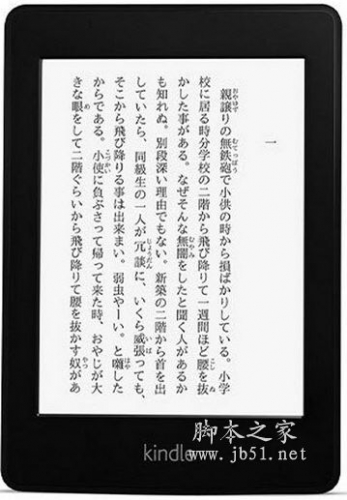 一
親譲りの無鉄砲で小供の時から損ばかりしている。小学
校に居る時分学校の二階から飛び降りて一週間ほど腰を抜
かした事がある。なぜそんな無闇をしたと聞く人があるか
も知れぬ。別段深い理由でもない。新築の二階から首を出
していたら、同級生の一人が冗談に、いくら威張っても、
そこから飛び降りる事は出来まい。弱虫やーい。と囃した
からである。小使に負ぶさって帰って来た時、おやじが大
きな眼をして二階ぐらいから飛び降りて腰を抜かす奴があ
kindle
脚本之家
www.jb51.net